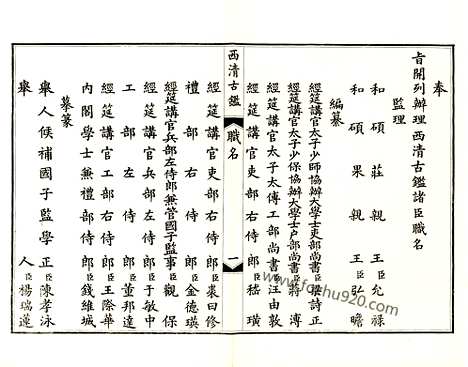 奉
旨開列辦理西清古鑑諸臣職名
監理
和碩莊親王臣允祿
和碩果親王臣弘瞻
編纂
經筵講官太子少師協辦大學士吏部尚書臣梁詩正
經筵講官太子少保協辦大學士戶部尚書臣蔣溥
經筵講官太子太傅工部尚書臣汪由敦
經筵講官吏部右侍郎臣嵇璜
西清古鑑
職名
一
經筵講官吏部右侍郎臣裘曰修
禮部右侍郎臣金德瑛
經筵講官兵部左侍郎兼管國子監事臣觀保
經筵講官兵部右侍郎臣于敏中
工部左侍郎臣董邦達
經筵講官工部右侍郎臣王際華
內閣學士兼禮部侍郎臣錢維城
摹篆
舉人候補國子監學正臣陳孝泳
舉人臣楊瑞蓮
www.fozhu920.com